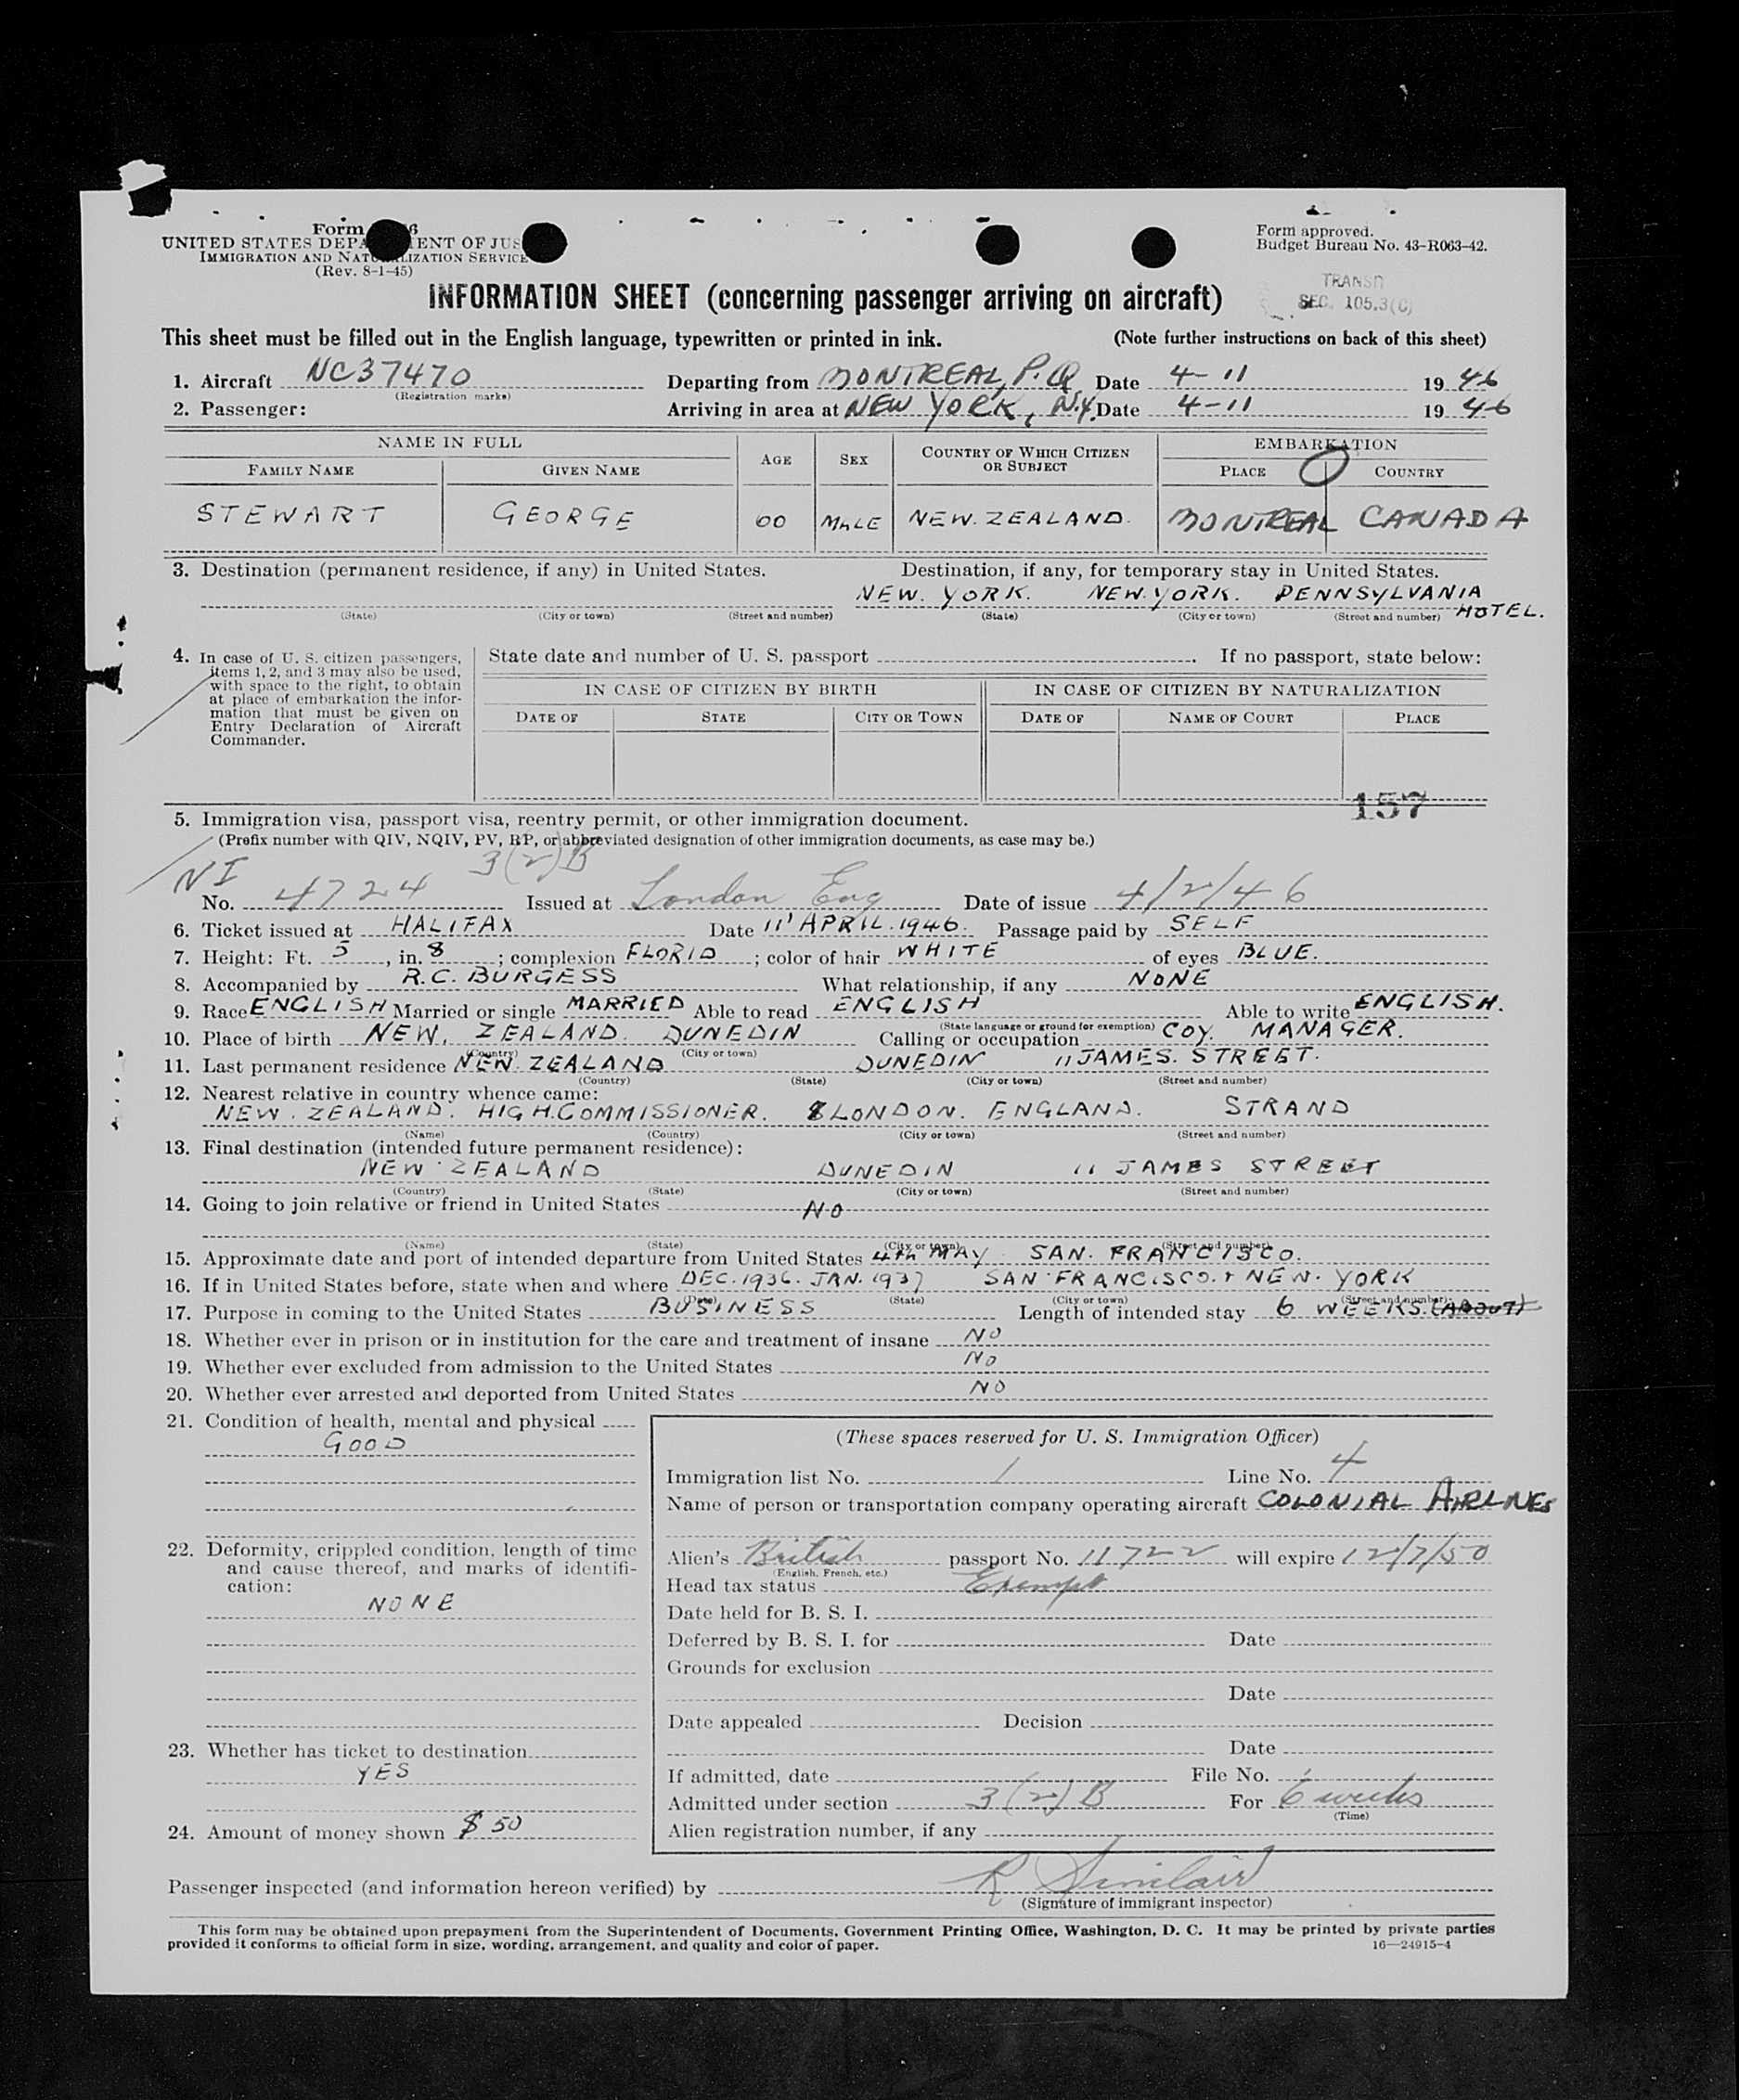 Form 6
UNITED STATES DEPA ENT OF JUS
IMMIGRATION AND NATURALIZATION SERVICE
(Rev. 8-1-45)
Form approved.
Budget Bureau No. 43-R063-42.
TRANSIT
SEC. 105.3(C)
INFORMATION SHEET (concerning passenger arriving on aircraft)
This sheet must be filled out in the English language, typewritten or printed in ink. (Note further instructions on back of this sheet)
1. Aircraft NC37470 Departing from MONTREAL, P.Q. Date 4-11 1946
(Registration marks)
2. Passenger: Arriving in area at NEW YORK, N.Y. Date 4-11 1946
NAME IN FULL AGE SEX COUNTRY OF WHICH CITIZEN OR SUBJECT EMBARKATION
FAMILY NAME GIVEN NAME PLACE COUNTRY
STEWART GEORGE 60 MALE NEW. ZEALAND. MONTREAL CANADA
3. Destination (permanent residence, if any) in United States. Destination, if any, for temporary stay in United States.
NEW. YORK. NEW. YORK. PENNSYLVANIA HOTEL.
(State) (City or town) (Street and number) (State) (City or town) (Street and number)
4. In case of U. S. citizen passengers, items 1, 2, and 3 may also be used, with space to the right, to obtain at place of embarkation the information that must be given on Entry Declaration of Aircraft Commander.
State date and number of U. S. passport . If no passport, state below:
IN CASE OF CITIZEN BY BIRTH IN CASE OF CITIZEN BY NATURALIZATION
DATE OF STATE CITY OR TOWN DATE OF NAME OF COURT PLACE
157
5. Immigration visa, passport visa, reentry permit, or other immigration document.
(Prefix number with QIV, NQIV, PV, RP, or abbreviated designation of other immigration documents, as case may be.)
NI 3(2)B
No. 4724 Issued at London Eng Date of issue 4/2/46
6. Ticket issued at HALIFAX Date 11' APRIL. 1946. Passage paid by SELF
7. Height: Ft. 5, in. 8; complexion FLORID; color of hair WHITE of eyes BLUE.
8. Accompanied by R.C. BURGESS What relationship, if any NONE
9. Race ENGLISH Married or single MARRIED Able to read ENGLISH Able to write ENGLISH.
(State language or ground for exemption)
10. Place of birth NEW. ZEALAND. DUNEDIN Calling or occupation COY. MANAGER.
(Country) (City or town)
11. Last permanent residence NEW. ZEALAND DUNEDIN 11 JAMES. STREET.
(Country) (State) (City or town) (Street and number)
12. Nearest relative in country whence came:
NEW. ZEALAND. HIGH. COMMISSIONER. LONDON. ENGLAND. STRAND
(Name) (Country) (City or town) (Street and number)
13. Final destination (intended future permanent residence):
NEW ZEALAND DUNEDIN 11 JAMES STREET
(Country) (State) (City or town) (Street and number)
14. Going to join relative or friend in United States NO
(Name) (State) (City or town) (Street and number)
15. Approximate date and port of intended departure from United States 4th MAY SAN. FRANCISCO.
16. If in United States before, state when and where DEC. 1936. JAN. 1937 SAN FRANCISCO. + NEW. YORK
(Date) (State) (City or town) (Street and number)
17. Purpose in coming to the United States BUSINESS Length of intended stay 6 WEEKS. (ABOUT)
18. Whether ever in prison or in institution for the care and treatment of insane NO
19. Whether ever excluded from admission to the United States NO
20. Whether ever arrested and deported from United States NO
21. Condition of health, mental and physical
GOOD
22. Deformity, crippled condition, length of time and cause thereof, and marks of identification:
NONE
23. Whether has ticket to destination
YES
24. Amount of money shown $ 50
(These spaces reserved for U. S. Immigration Officer)
Immigration list No. 1 Line No. 4
Name of person or transportation company operating aircraft COLONIAL AIRLINES
Alien's British passport No. 11722 will expire 12/7/50
(English, French, etc.)
Head tax status Exempt
Date held for B. S. I.
Deferred by B. S. I. for Date
Grounds for exclusion
Date
Date appealed Decision
Date
If admitted, date File No.
Admitted under section 3(2)B For 6 weeks
(Time)
Alien registration number, if any
Passenger inspected (and information hereon verified) by R Sinclair
(Signature of immigrant inspector)
This form may be obtained upon prepayment from the Superintendent of Documents, Government Printing Office, Washington, D. C. It may be printed by private parties
provided it conforms to official form in size, wording, arrangement, and quality and color of paper. 16—24915-4